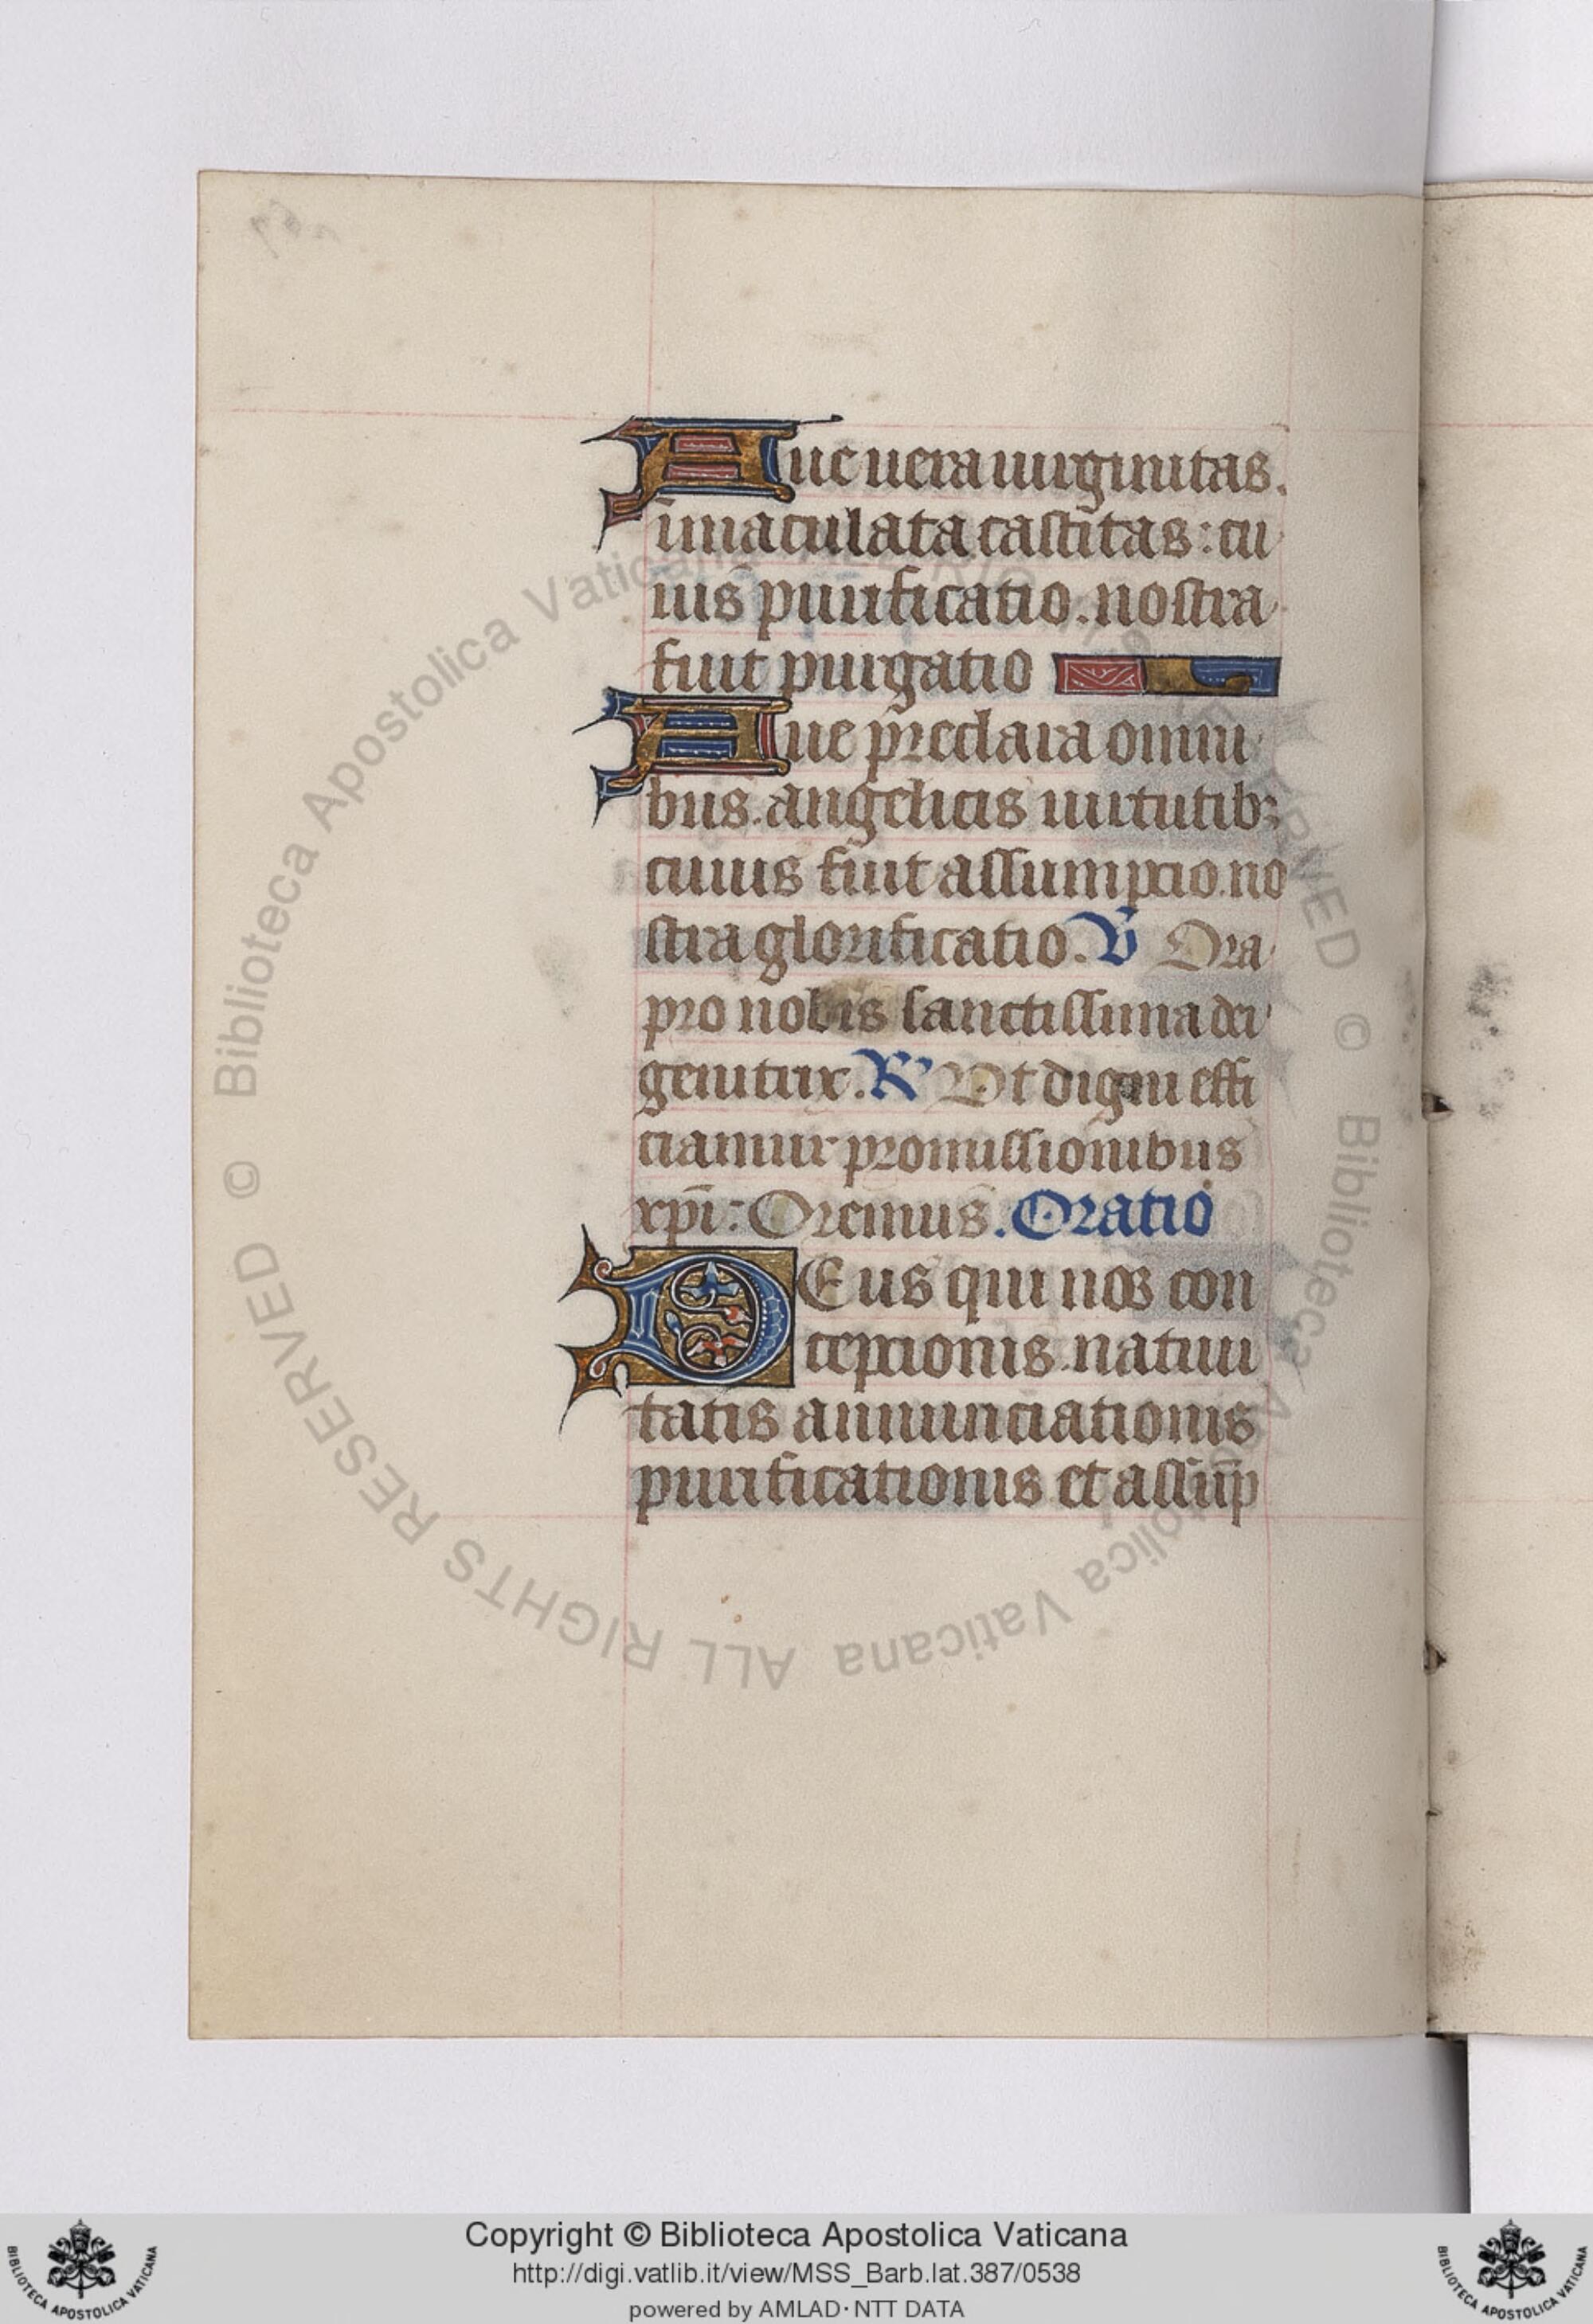 Aue uera uirginitas.
īmaculata castitas: cu
ius purificatio. nostra
fuit purgatio
Aue p̄reclara omni
bus. angelicis uirtutibꝫ
cuius fuit assumptio. no
stra glorificatio. V̄ Ora
pro nobis sanctissima dei
genitrix. R̄ Vt digni effi
ciamur promissionibus
xp̄i: Oremus. Oratio
DEus qui nos con
ceptionis. natiui
tatis annunciationis
purificationis et assūp
© Biblioteca Apostolica Vaticana ALL RIGHTS RESERVED © Biblioteca Apostolica Vaticana ALL RIGHTS RESERVED
Copyright © Biblioteca Apostolica Vaticana
http://digi.vatlib.it/view/MSS_Barb.lat.387/0538
powered by AMLAD·NTT DATA
BIBLIOTECA APOSTOLICA VATICANA
BIBLIOTECA APOSTOLICA VATICANA